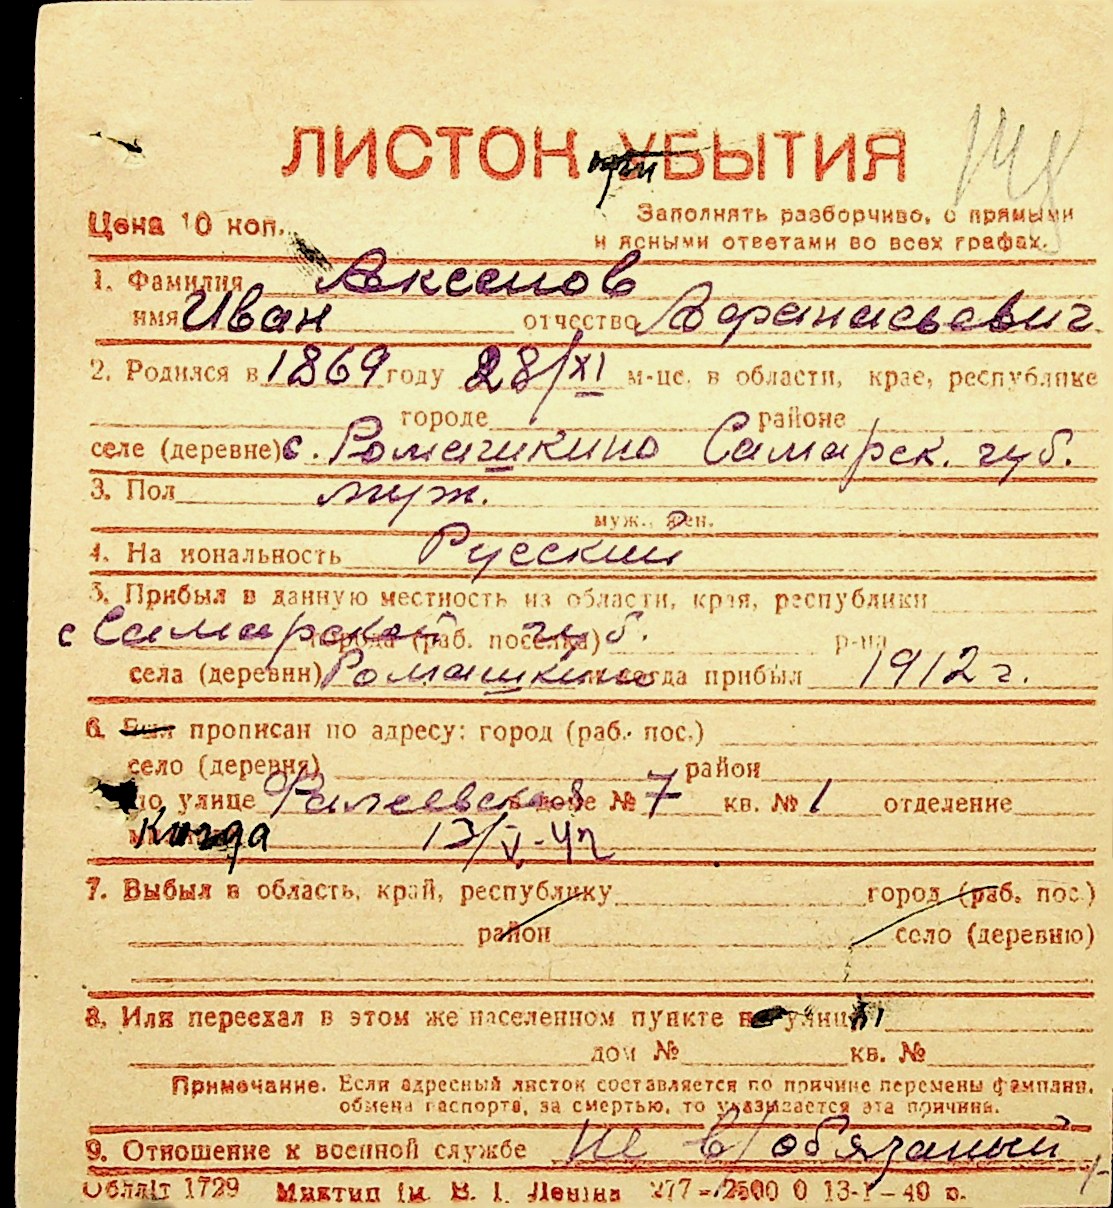 148
ЛИСТОК при УБЫТИЯ
Цена 10 коп.
Заполнять разборчиво, с прямыми
и ясными ответами во всех графах.
1. Фамилия Аксенов
имя Иван отчество Афанасьевич
2. Родился в 1869 году 28/XI м-це, в области, крае, республике
городе районе
селе (деревне) с. Ромашкино Самарск. губ.
3. Пол муж.
муж., жен.
4. На иональность Русский
5. Прибыл в данную местность из области, края, республики
с Самарской губ. города (раб. поселка) р-на
села (деревни) Ромашкино когда прибыл 1912 г.
6. Был прописан по адресу: город (раб. пос.)
село (деревня) район
по улице в доме № 7 кв. № 1 отделение
Когда 13/V-42
7. Выбыл в область, край, республику город (раб. пос.)
район село (деревню)
8. Или переехал в этом же населенном пункте на улицы
дом № кв. №
Примечание. Если адресный листок составляется по причине перемены фамилии,
обмена паспорта, за смертью, то указывается эта причина.
9. Отношение к военной службе не в/обязаный
Облліт 1729 Миктип ім. В. І. Леніна 277-2500 0 13-I-40 р.